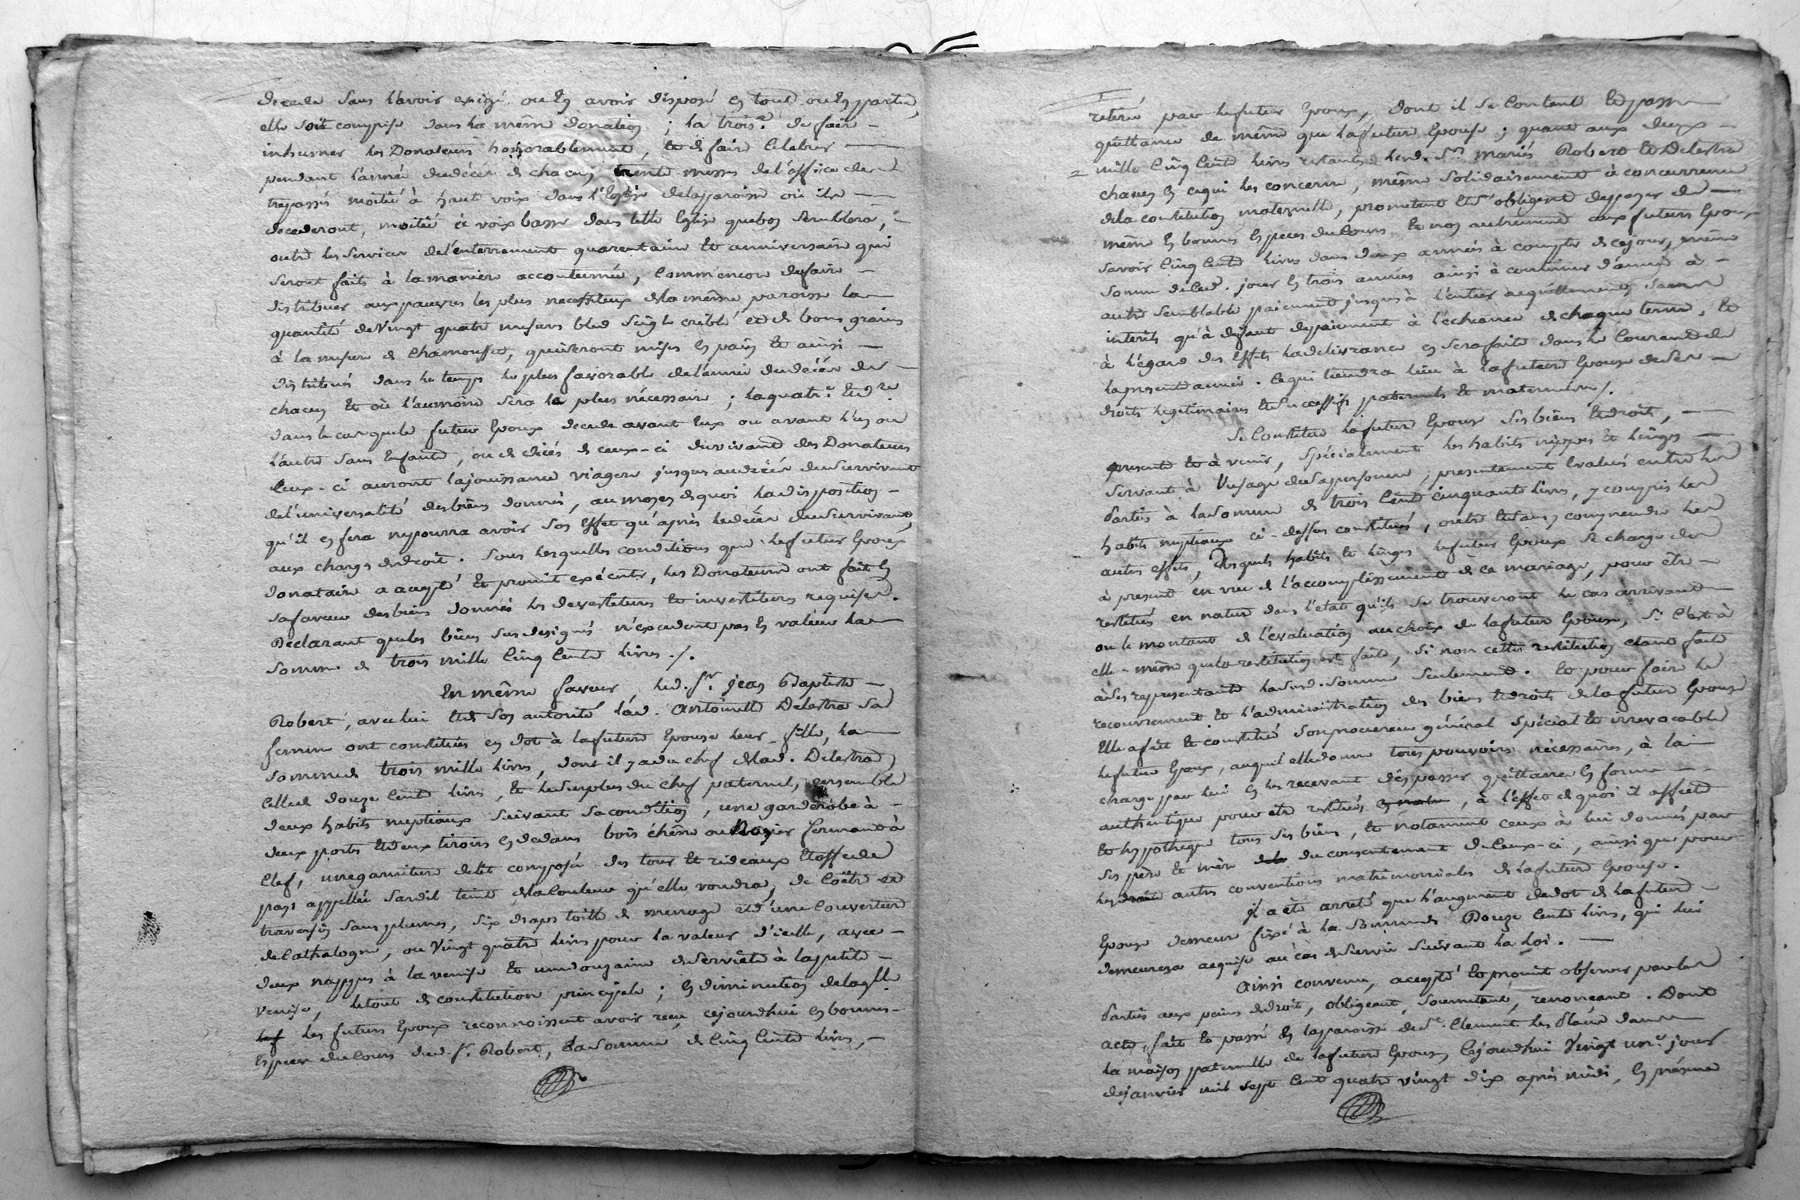 decede sans l'avoir exigé ou en avoir disposé en tout ou en partie,
elle soit comprise dans la même donation ; la trois.e de faire
inhumer les Donateurs honorablement, et de faire celebrer
pendant l'année du décés de chacun, trente messes de l'office des
trepassés moitié à haut voix dans l'Eglise de la paroisse où ils
decederont, moitié à voix basse dans telle Eglise que bon semblera,
outre les services de l'enterrement quarantaine et anniversaire qui
seront faits à la manière accoutumée, comme encor de faire
distribuer aux pauvres les plus necessiteux de la même paroisse la
quantité de vingt quatre mesures bled seigle criblé et de bons grains
à la mesure de Chamousset, qui seront mises en pain et ainsi
distribués dans le temps le plus favorable de l'année du décés de
chacun et où l'aumône sera le plus nécessaire ; la quatr.e et d.re
dans le cas que le futur Epoux decede avant eux ou avant l'un ou
l'autre sans Enfants, ou de décés de ceux-ci du vivant des Donateurs
ceux-ci auront la jouissance viagere jusques au décés du survivant
de l'universalité des biens donnés, au moyen de quoi la disposition
qu'il en fera ne pourra avoir son Effet qu'après le décés du survivant,
aux charges de droit. Sous lesquelles conditions que le futur Epoux
donataire a accepté et promit exécuter, les Donateurs ont fait en
sa faveur des biens donnés les devestitures et investitures requises.
Déclarant que les biens sus designés n'excedent pas en valeur la
somme de trois mille cinq cents livres ./.
En même faveur, led. Sr. jean Baptiste
Robert, avec lui et de son autorité lad. Antoinette Delestra sa
femme ont constitués en dot à la future Epouse leur fille, la
somme de trois mille livres, dont il y a du chef de lad. Delestra
celle de douze cents livres, et le surplus du chef paternel, ensemble
deux habits nuptiaux suivant sa condition, une garderobe à
deux portes et deux tiroirs en dedans bois chêne ou Noyer fermant à
clef, une garniture de lit composée des tour et rideaux etoffe de
pays appellée sardil teint de la couleur qu'elle voudra, de coëtre et
traversin sans plumes, six draps toille de menage et d'une couverture
de Cathalogne, ou vingt quatre livres pour la valeur d'icelle, avec
deux nappes à la venise et une douzaine de serviette à la petite
venise, le tout de constitution principale ; en diminution de laq.lle
les futurs Epoux reconnoissent avoir reçu cejourd'hui en bonnes
Especes du cours dud. Sr. Robert, la somme de cinq cents livres,
retirée par le futur Epoux, dont il se content et passe
quittance de même que la future Epouse ; quant aux deux
mille cinq cents livres restantes lesd. Srs. mariés Robert et Delestra
chacun en ce qui les concerne, même solidairement à concurrence
de la constitution maternelle, promettent et s'obligent de payer de
même en bonnes Especes du cours et non autrement aux futurs Epoux
savoir cinq cents livres dans deux années à compter de ce jour, même
somme de lad. jour en trois années ainsi à continuer d'année à
autre semblable paiement jusques à l'entier acquittement, sans
interêts qu'à defaut de paiement à l'échéance de chaque terme, et
à l'égard des Effets la delivrance en sera faite dans le courant de
la presente année. ce qui tiendra lieu à la future Epouse de ses
droits legitimaires et successifs paternels et maternels ./.
Se constitue la future Epouse ses biens et droits,
presents et à venir, spécialement les habits nippes et linges
servant à l'usage de sa personne, presentement Evalués entre les
Parties à la somme de trois cent cinquante livres, y compris les
habits nuptiaux ci-dessus constitués, outre et sans y comprendre les
autres effets, desquels habits et linges le futur Epoux se charge dès
à présent en vue de l'accomplissement de ce mariage, pour être
restitués en nature dans l'etat qu'ils se trouveront le cas arrivant
ou le montant de l'evaluation au choix de la future Epouse, si c'est à
elle-même que la restitution est faite, si non cette restitution etant faite
à ses representants lad. somme seulement. et pour faire le
recouvrement et l'administration des biens et droits de la future Epouse
Elle a fait et constitué son procureur général spécial et irrevocable
le futur Epoux, auquel elle donne tous pouvoirs nécessaires, à la
charge par lui en les recevant d'en passer quittance en forme
authentique pour être restitués, à l'effet de quoi il affecte
et hypotheque tous ses biens, et notamment ceux à lui donnés par
ses pere et mère du consentement de ceux-ci, ainsi que pour
les autres conventions matrimoniales de la future Epouse.
Il a été arreté que l'augment de dot de la future
Epouse demeure fixé à la somme de Douze cents livres, qui lui
demeurera acquise au cas de survie suivant la Loi.
Ainsi convenu, accepté et promit observer par les
Parties aux peines de droit, obligeant, soumettant, renonçant. Dont
acte, fait et passé en la paroisse de St. Clement les Places dans
la maison paternelle de la future Epouse, cejourd'hui vingt un.e jour
de janvier mil sept cent quatre vingt dix après midi, en présence